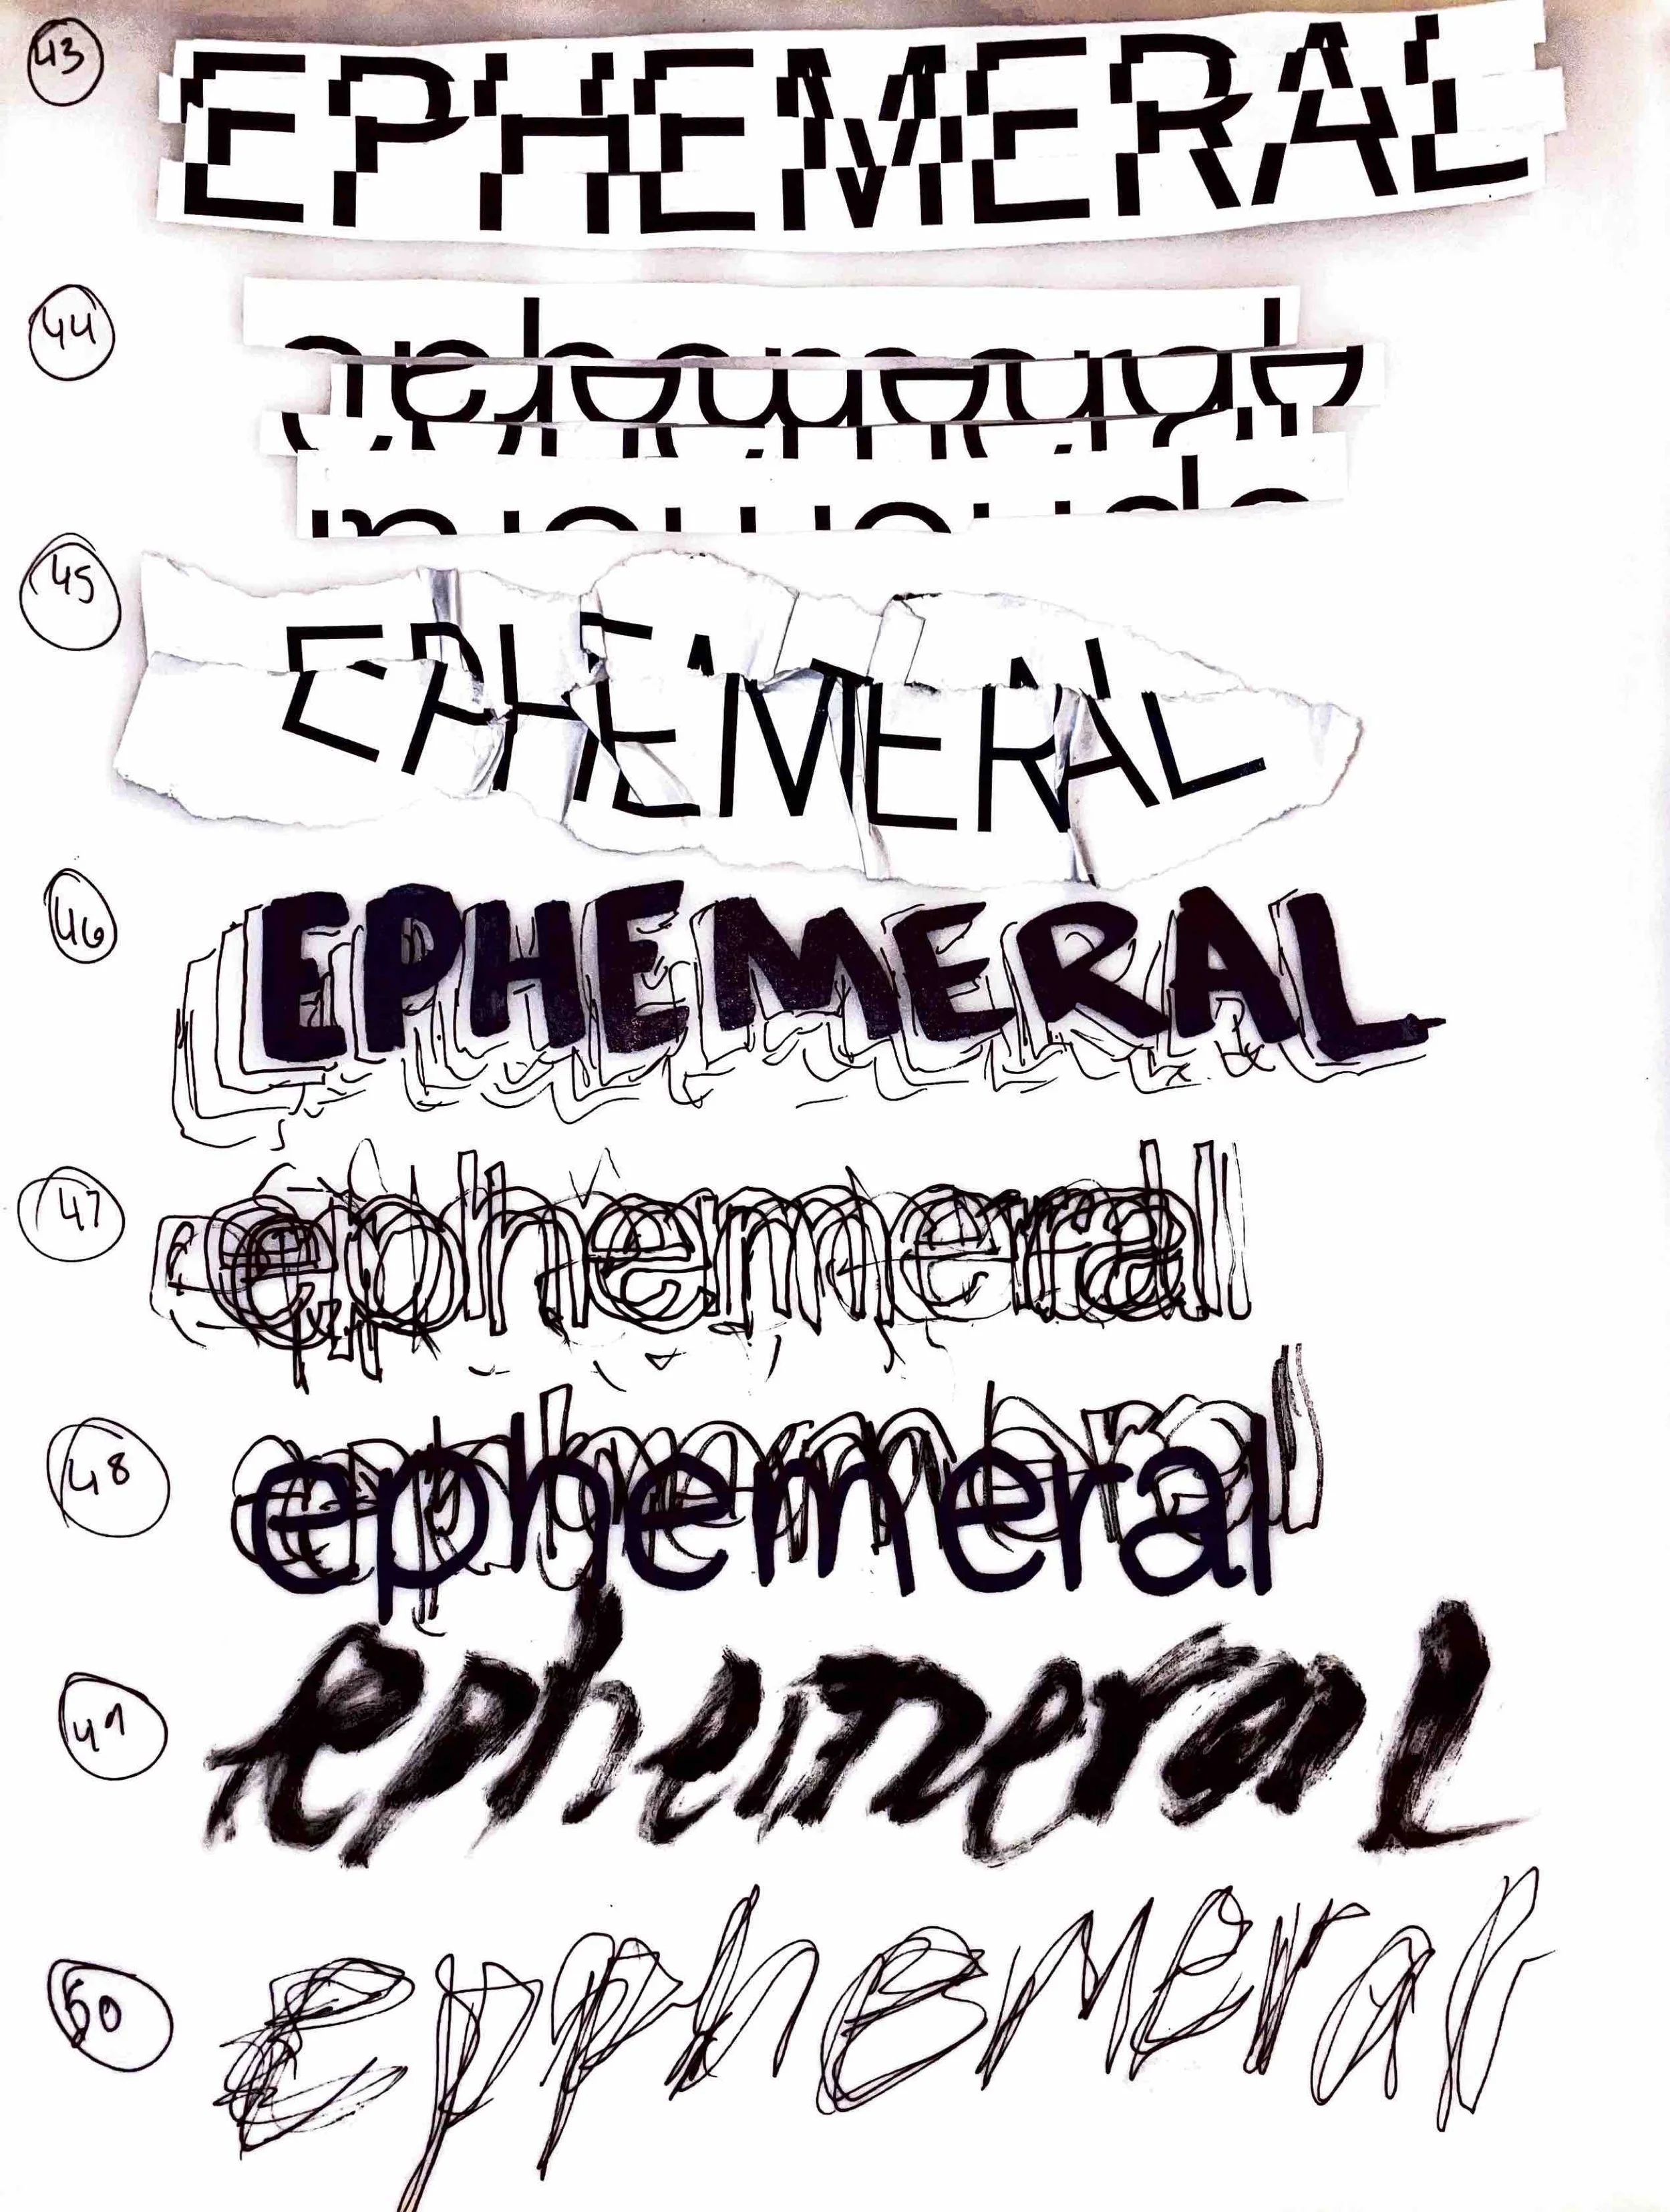 43 EPHEMERAL
44
45 EPHEMERAL
46 EPHEMERAL
47 ephemeral
48 ephemeral
49 ephemeral
50 epphemeral